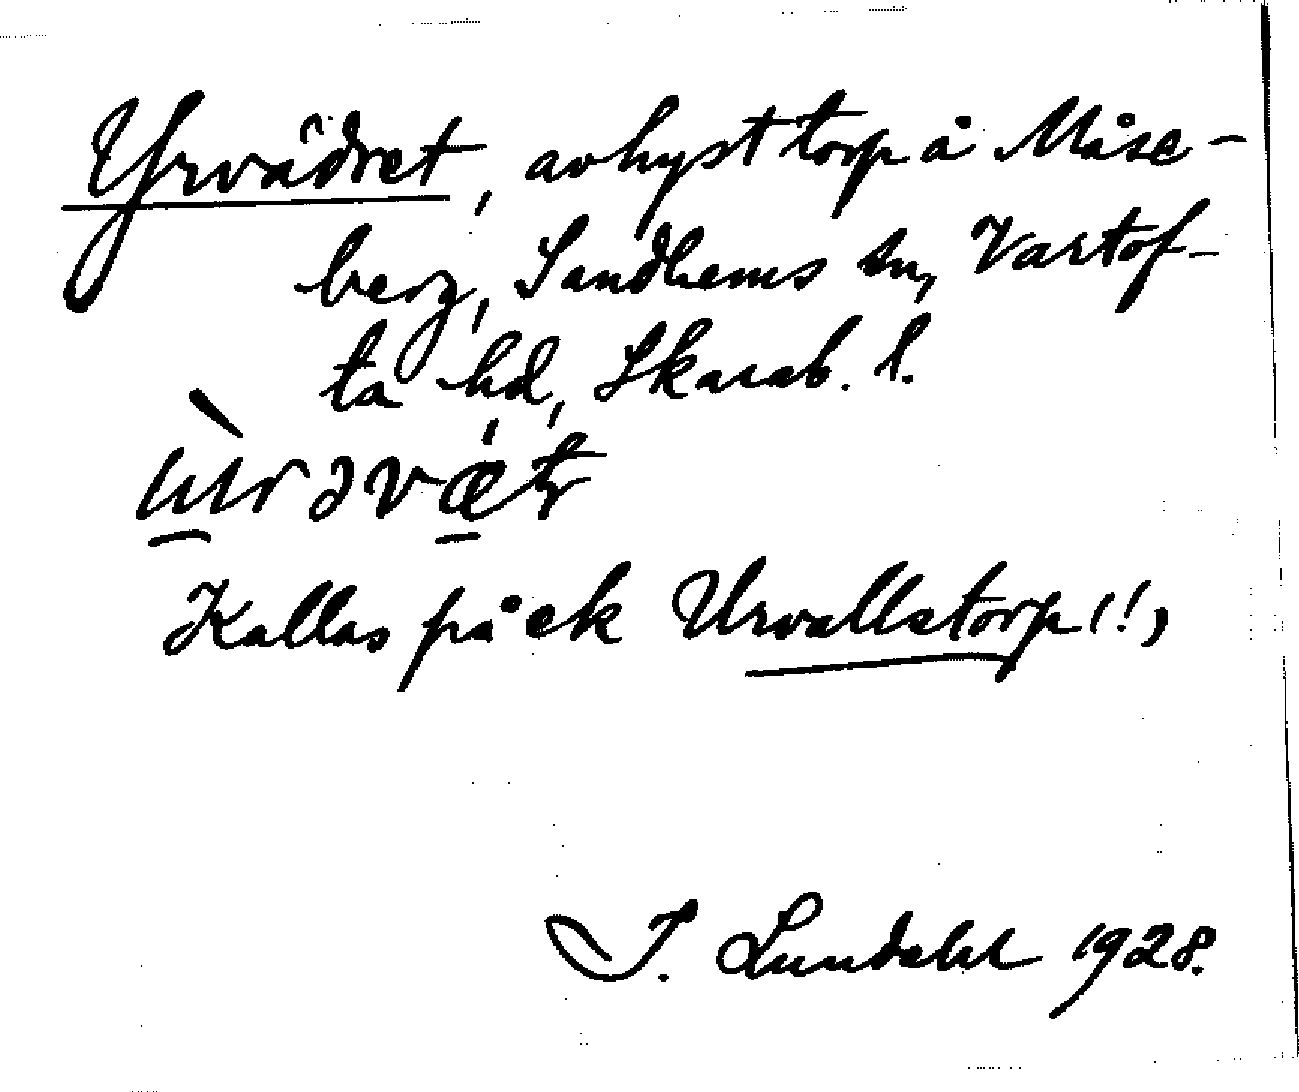 Yrvädret, avhyst torp å Måse-
berg, Sandhems sn, Vartof-
ta hd, Skarab. l.
Kallas på ek Urvallstorp (!)
I. Lundahl 1928.